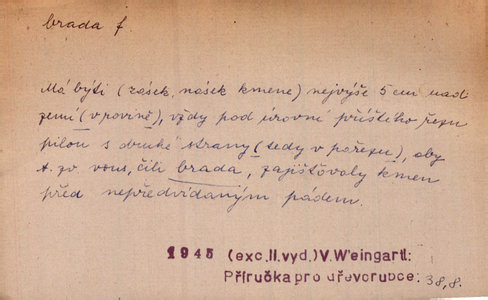 brada f.
Má býti (zásek, násek kmene) nejvýše 5 cm nad
zemí (v rovině), vždy pod úrovní příštího řezu
pilou s druhé strany (tedy v pořezu), aby
t. zv. vous, čili brada, zajišťovaly kmen
před nepředvídaným pádem.
1945 (exc.II.vyd.) V.Weingartl:
Příručka pro dřevorubce. 38,8.